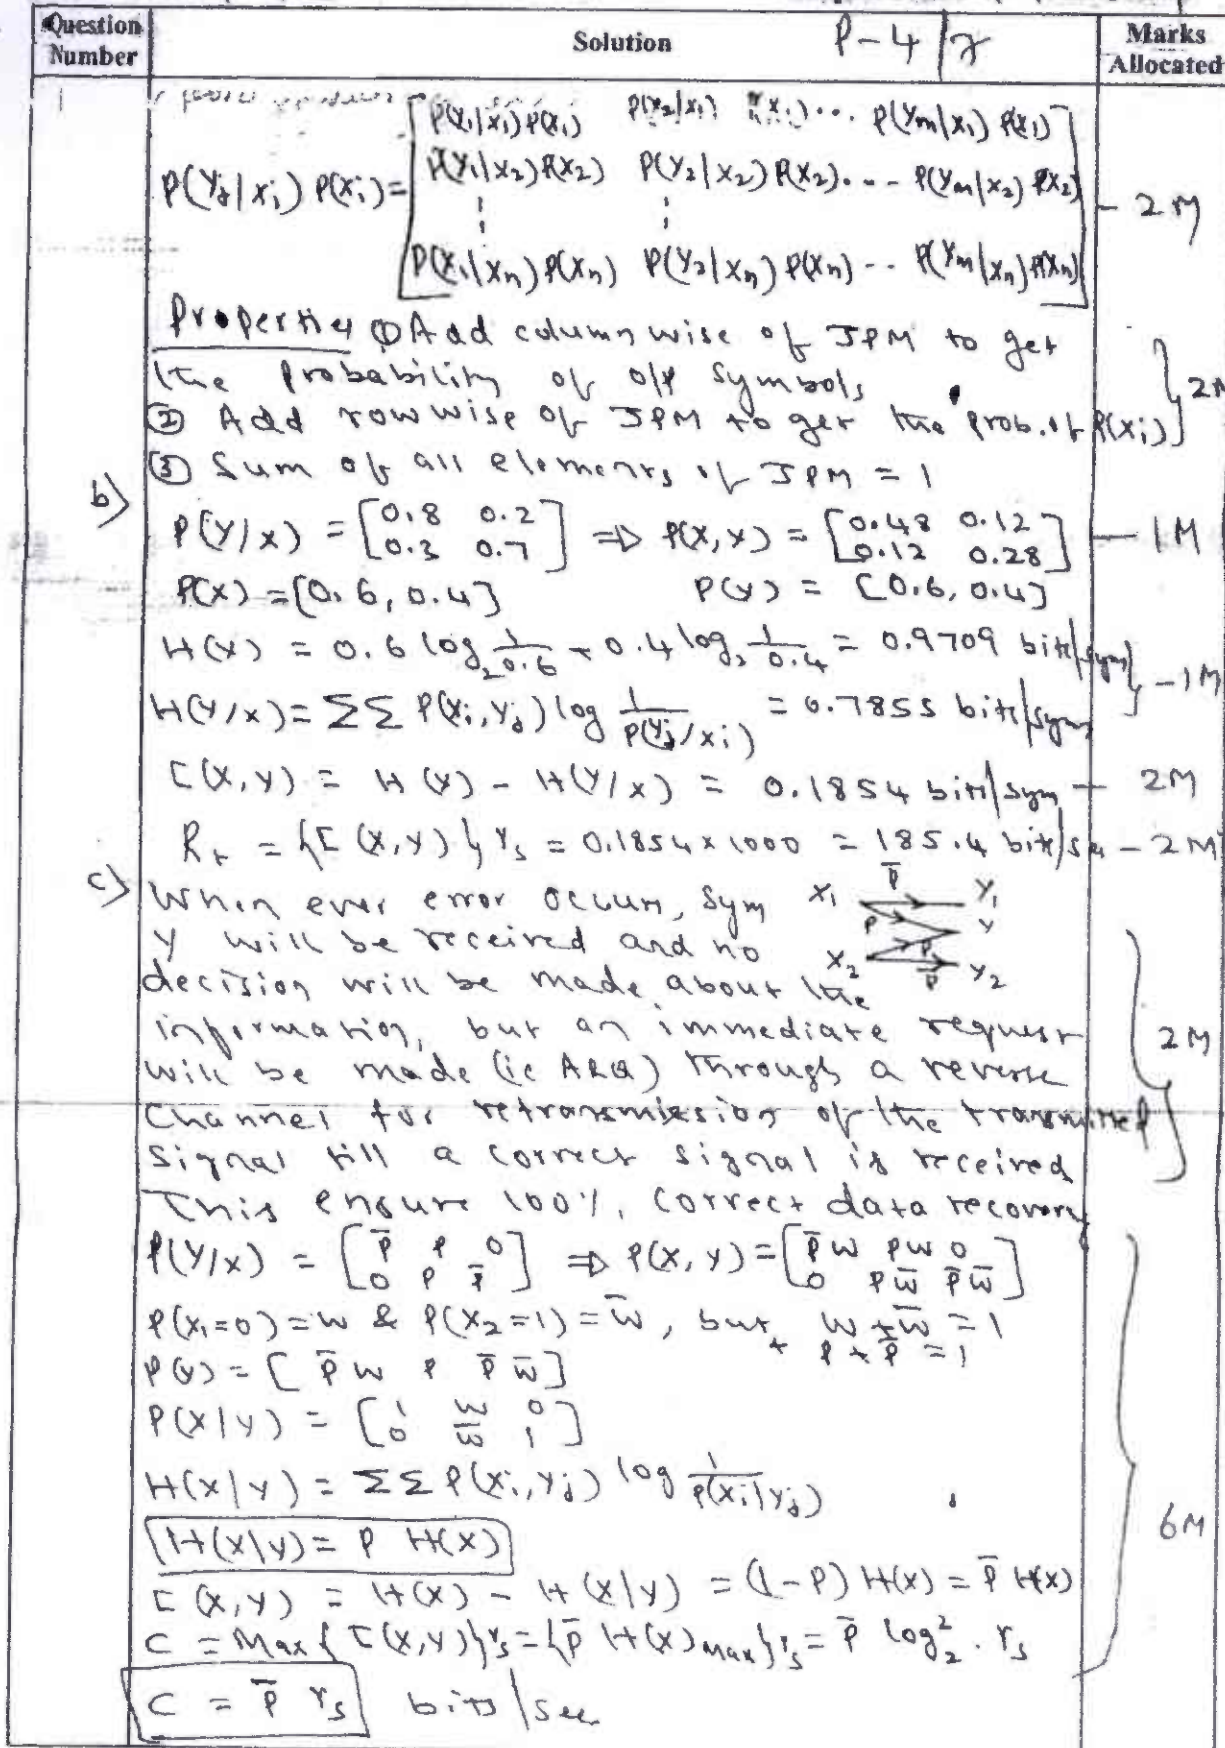 Question Number Solution P-4/7 Marks Allocated
P(Y₁|x₁)P(x₁) P(x₂|x₁) P(x₁)... P(Ym|x₁) P(x₁)
P(Yj|xi) P(xi) = P(Y₁|x₂)P(x₂) P(Y₂|x₂)P(x₂)... P(Ym|x₂) P(x₂) - 2M
P(Y₁|xn)P(xn) P(Y₂|xn)P(xn)-- P(Ym|xn)P(xn)
Properties ① Add column wise of JPM to get
the Probability of o/p symbols } 2M
② Add row wise of JPM to get the prob. of P(xi)
③ Sum of all elements of JPM = 1
b) P(Y/x) = [0.8 0.2 / 0.3 0.7] ⇒ P(X,Y) = [0.48 0.12 / 0.12 0.28] - 1M
P(X) = [0.6, 0.4] P(Y) = [0.6, 0.4]
H(Y) = 0.6 log₂ 1/0.6 + 0.4 log₂ 1/0.4 = 0.9709 bits/sym
H(Y/x) = ΣΣ P(xi, Yj) log 1/P(Yj/xi) = 0.7855 bits/sym } - 1M
I(X,Y) = H(Y) - H(Y/x) = 0.1854 bits/sym - 2M
Rt = {I(X,Y)} rs = 0.1854 x 1000 = 185.4 bits/se - 2M
c) When ever error occurs, sym X₁ p̄ Y₁
Y will be received and no p Y
decision will be made about the X₂ p p̄ Y₂
information, but an immediate request 2M
will be made (ie ARQ) through a reverse
channel for retransmission of the transmitted
signal till a correct signal is received
This ensure 100%. correct data recovery
P(Y/x) = [p̄ p 0 / 0 p p̄] ⇒ P(X,Y) = [p̄w pw 0 / 0 pw̄ p̄w̄]
P(x₁=0) = w & P(x₂=1) = w̄, but w + w̄ = 1
+ p + p̄ = 1
P(Y) = [p̄w p p̄w̄]
P(X|Y) = [1 w 0 / 0 w̄ 1]
H(X|Y) = ΣΣ P(xi, Yj) log 1/P(xi|Yj)
H(X|Y) = P H(X) 6M
I(X,Y) = H(X) - H(X|Y) = (1-P) H(X) = p̄ H(X)
C = Max{I(X,Y)}rs = {p̄ H(X)Max}rs = p̄ log₂² . rs
C = p̄ rs bits/sec